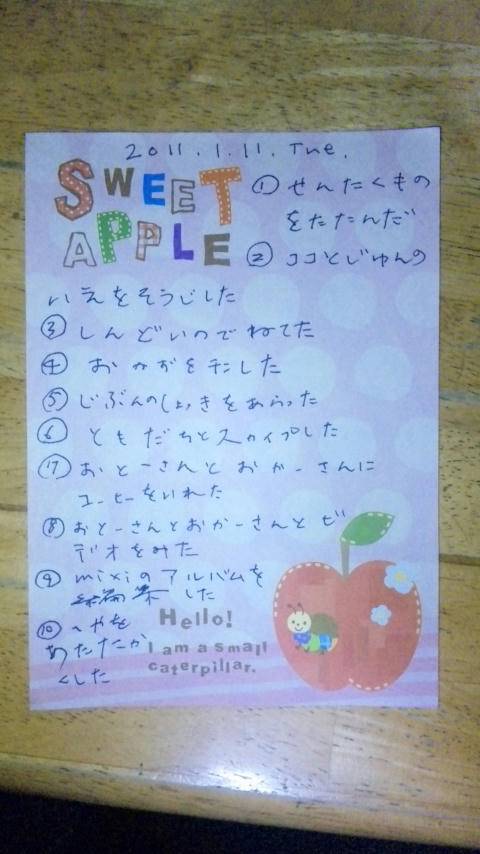 2011.1.11.Tue.
SWEET
APPLE
① せんたくもの
をたたんだ
② ココとじゅんの
いえをそうじした
③ しんどいのでねてた
④ おかずを干した
⑤ じぶんのしょっきをあらった
⑥ ともだちとスカイプした
⑦ おとーさんとおかーさんに
コーヒーをいれた
⑧ おとーさんとおかーさんとビ
デオをみた
⑨ mixiのアルバムを
した
⑩ へやを
あたたか
くした
Hello!
I am a small
caterpillar.